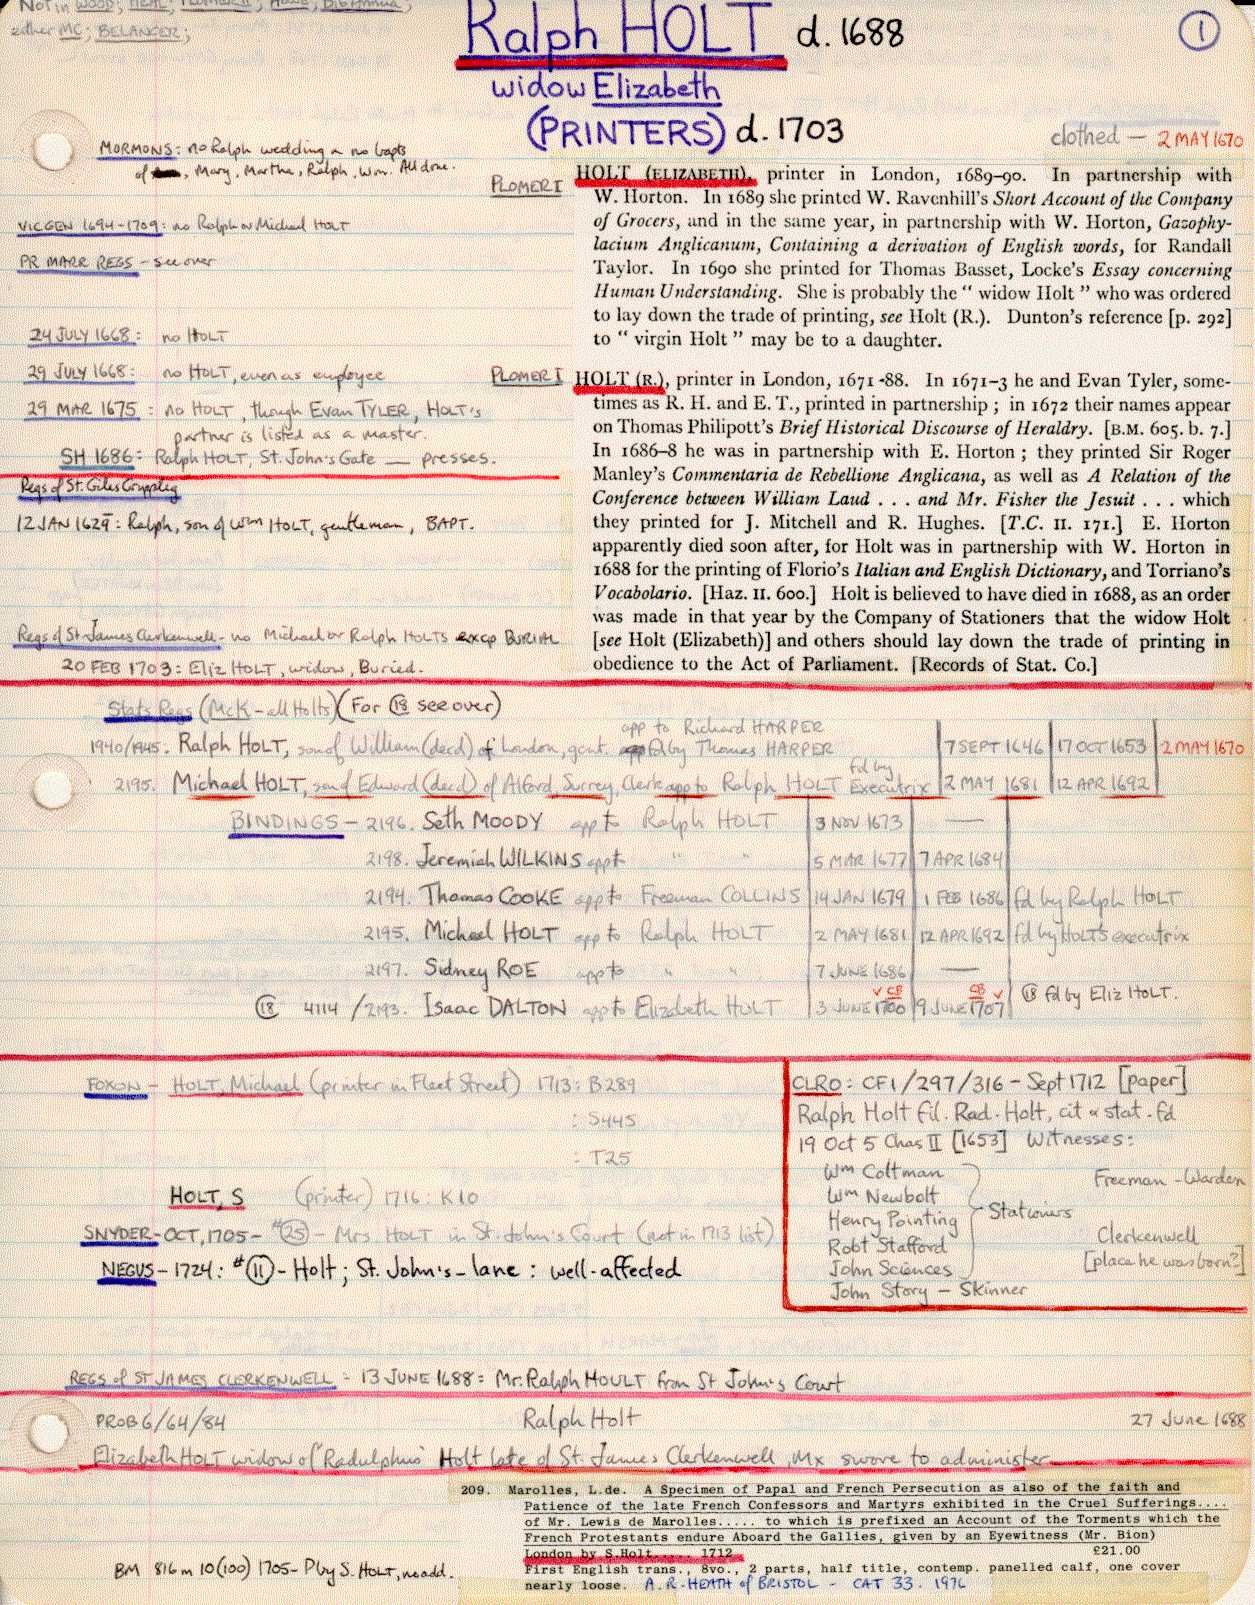 Not in WOOD; HEAL; PLOMER II; HOWE; BIBliANNIA;
either MC; BELANGER;
Ralph HOLT d. 1688
1
widow Elizabeth
(PRINTERS) d. 1703
clothed — 2 MAY 1670
MORMONS: no Ralph wedding & no bapts
of , Mary, Martha, Ralph, Wm. All done.
VICGEN 1694-1709: no Ralph or Michael HOLT
PR MARR REGS - see over
24 JULY 1668: no HOLT
29 JULY 1668: no HOLT, even as employee
29 MAR 1675: no HOLT, though Evan TYLER, HOLT's
partner is listed as a master.
SH 1686: Ralph HOLT, St. John's Gate — presses.
Regs of St. Giles Crippleg
12 JAN 1629: Ralph, son of Wm HOLT, gentleman, BAPT.
Regs of St James Clerkenwell - no Michael or Ralph HOLTS excp BURIAL
20 FEB 1703: Eliz HOLT, widow, Buried.
PLOMER I
HOLT (ELIZABETH), printer in London, 1689-90. In partnership with
W. Horton. In 1689 she printed W. Ravenhill's Short Account of the Company
of Grocers, and in the same year, in partnership with W. Horton, Gazophy-
lacium Anglicanum, Containing a derivation of English words, for Randall
Taylor. In 1690 she printed for Thomas Basset, Locke's Essay concerning
Human Understanding. She is probably the "widow Holt" who was ordered
to lay down the trade of printing, see Holt (R.). Dunton's reference [p. 292]
to "virgin Holt" may be to a daughter.
PLOMER I
HOLT (R.), printer in London, 1671-88. In 1671-3 he and Evan Tyler, some-
times as R. H. and E. T., printed in partnership; in 1672 their names appear
on Thomas Philipott's Brief Historical Discourse of Heraldry. [B.M. 605. b. 7.]
In 1686-8 he was in partnership with E. Horton; they printed Sir Roger
Manley's Commentaria de Rebellione Anglicana, as well as A Relation of the
Conference between William Laud . . . and Mr. Fisher the Jesuit . . . which
they printed for J. Mitchell and R. Hughes. [T.C. II. 171.] E. Horton
apparently died soon after, for Holt was in partnership with W. Horton in
1688 for the printing of Florio's Italian and English Dictionary, and Torriano's
Vocabolario. [Haz. II. 600.] Holt is believed to have died in 1688, as an order
was made in that year by the Company of Stationers that the widow Holt
[see Holt (Elizabeth)] and others should lay down the trade of printing in
obedience to the Act of Parliament. [Records of Stat. Co.]
Stats Regs (McK - all Holts) (For 18 see over)
app to Richard HARPER
1940/1945. Ralph HOLT, son of William (decd) of London, gent. fd by Thomas HARPER 7 SEPT 1646 17 OCT 1653 2 MAY 1670
2195. Michael HOLT, son of Edward (decd) of Alford, Surrey, Clerk app to Ralph HOLT fd by Executrix 2 MAY 1681 12 APR 1692
BINDINGS - 2196. Seth MOODY app to Ralph HOLT 3 NOV 1673 —
2198. Jeremiah WILKINS app to " " 5 MAR 1677 7 APR 1684
2194. Thomas COOKE app to Freeman COLLINS 14 JAN 1679 1 FEB 1686 fd by Ralph HOLT
2195. Michael HOLT app to Ralph HOLT 2 MAY 1681 12 APR 1692 fd by HOLT'S executrix
2197. Sidney ROE app to " " 7 JUNE 1686 —
✓ CB CB ✓
18 4114/2193. Isaac DALTON app to Elizabeth HOLT 3 JUNE 1700 9 JUNE 1707 18 fd by Eliz HOLT.
FOXON - HOLT, Michael (printer in Fleet Street) 1713: B289
: S445
: T25
HOLT, S (printer) 1716: K10
SNYDER - OCT, 1705 - #25 - Mrs. HOLT in St. John's Court (not in 1713 list)
NEGUS - 1724: #11 - Holt; St. John's-lane: well-affected
CLRO: CF1/297/316 - Sept 1712 [paper]
Ralph Holt fil. Rad. Holt, cit & stat. fd
19 Oct 5 Chas II [1653] Witnesses:
Wm Coltman
Wm Newbolt
Henry Pointing
Robt Stafford
John Sciences
Stationers
John Story - Skinner
Freeman - Warden
Clerkenwell
[place he was born?]
REGS of ST JAMES CLERKENWELL = 13 JUNE 1688 = Mr. Ralph HOULT from St John's Court
PROB 6/64/84 Ralph Holt 27 June 1688
Elizabeth HOLT widow of "Radulphus" Holt late of St. James Clerkenwell, Mx swore to administer
209. Marolles, L.de. A Specimen of Papal and French Persecution as also of the faith and
Patience of the late French Confessors and Martyrs exhibited in the Cruel Sufferings....
of Mr. Lewis de Marolles..... to which is prefixed an Account of the Torments which the
French Protestants endure Aboard the Gallies, given by an Eyewitness (Mr. Bion)
London by S.Holt..... 1712 £21.00
First English trans., 8vo., 2 parts, half title, contemp. panelled calf, one cover
nearly loose. A. R. HEATH of BRISTOL - CAT 33. 1976
BM 816 m 10 (100) 1705 - P by S. HOLT, no add.